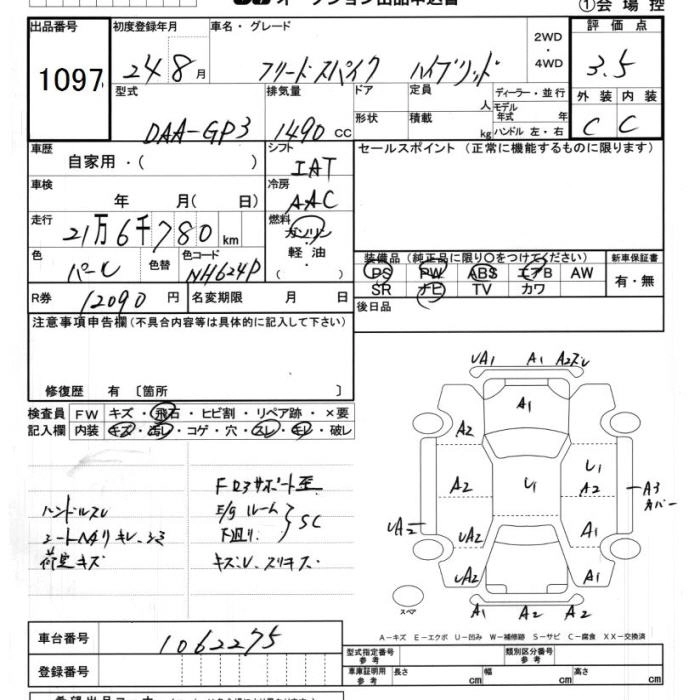 オークション出品申込書
①会場控
出品番号 初度登録年月 車名・グレード 2WD・4WD 評価点
1097 24 8月 フリードスパイク ハイブリッド 3.5
型式 排気量 ドア 定員 人 ディーラー・並行 外装 内装
DAA-GP3 1490 cc 形状 積載 kg モデル年式 年 ハンドル 左・右 C C
車歴 自家用・( ) シフト IAT セールスポイント (正常に機能するものに限ります)
車検 年 月( 日) 冷房 AAC
走行 21万6千780 km 燃料 ガソリン・軽油 ( )
装備品(純正品に限り○をつけてください) 新車保証書
色 パール 色替 色コード NH624P PS PW ABS エアB AW 有・無
SR ナビ TV カワ
R券 12090 円 名変期限 月 日 後日品
注意事項申告欄(不具合内容等は具体的に記入して下さい)
修復歴 有 〔箇所 〕
検査員 FW キズ・飛石・ヒビ割・リペア跡・×要
記入欄 内装 キズ・汚レ・コゲ・穴・スレ・キレ・破レ
ハンドルスレ
荷室キズ
E/gルーム
下廻り
SC
UA1 A1
A1
A2
U1
A2 U1 A2 A3 カバー
UA2 A1
UA2 A1
スペア
A1 A2 A2
A-キズ E-エクボ U-凹み W-補修跡 S-サビ C-腐食 XX-交換済
車台番号 1062275
登録番号
型式指定番号 参考 類別区分番号 参考
車庫証明用 参考 長さ cm 幅 cm 高さ cm